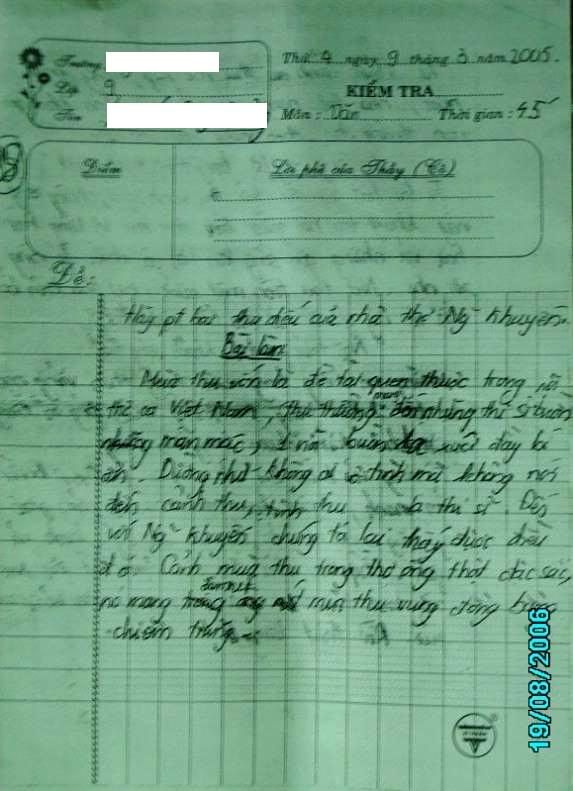 Trường:
Thứ 4 ngày 9 tháng 3 năm 2005.
Lớp 9
KIỂM TRA
Tên
Môn: Văn Thời gian: 45'
8
Điểm
Lời phê của Thầy (Cô)
Đề:
Hãy pt bài thu điếu của nhà thơ Ng~ Khuyến.
Bài làm
Mùa thu vốn là đề tài quen thuộc trong
thi ca Việt Nam, thu thường đến những thi sĩ buồn
những man mác, 1 nỗi buồn xưa đầy bí
ẩn. Dường như không ai vô tình mà không nói
đến cảnh thu, tình thu thi sĩ. Đến
với Ng~ Khuyến chúng ta lại thấy được điều
đó. Cảnh mùa thu trong thơ ông thật đặc sắc,
nó mang mùi thu vùng đồng bằng
chiêm trũng
19/08/2006